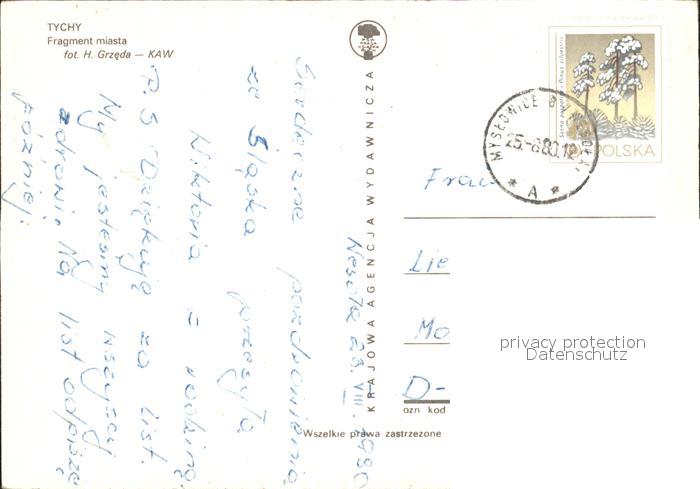 TYCHY
Fragment miasta
fot. H. Grzęda — KAW
KRAJOWA AGENCJA WYDAWNICZA
Wesoła 23.VIII.1980
Serdeczne pozdrowienia
ze Śląska przesyła
Wiktoria z rodziną
P.S Dziękuję za list.
My jesteśmy wszyscy
zdrowi. Na list odpiszę
później.
POLSKA
MYSŁOWICE
25.-8.80.12
* A *
Frau
Lie
Mo
D-
ozn kod
privacy protection
Datenschutz
Wszelkie prawa zastrzeżone